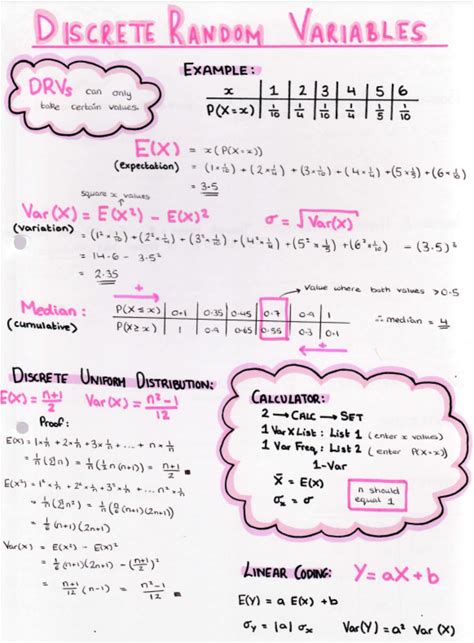 DISCRETE RANDOM VARIABLES
DRVs can only
take certain values.
EXAMPLE:
x 1 2 3 4 5 6
P(X=x) 1/10 1/4 1/10 1/4 1/5 1/10
E(X) = x(P(X=x))
(expectation) = (1×1/10) + (2×1/4) + (3×1/10) + (4×1/4) + (5×1/5) + (6×1/10)
= 3.5
square x values
Var(X) = E(X²) - E(X)² σ = √Var(x)
(variation) = (1²×1/10) + (2²×1/4) + (3²×1/10) + (4²×1/4) + (5²×1/5) + (6²×1/10) - (3.5)²
= 14.6 - 3.5²
= 2.35
+
value where both values >0.5
Median: P(X≤x) 0.1 0.35 0.45 0.7 0.9 1 ∴ median = 4
(cumulative) P(X≥x) 1 0.9 0.65 0.55 0.3 0.1
+
DISCRETE UNIFORM DISTRIBUTION:
E(X) = n+1/2 Var(X) = n²-1/12
Proof:
E(X) = 1×1/n + 2×1/n + 3×1/n + ... + n×1/n
= 1/n(Σn) = 1/n(½n(n+1)) = n+1/2
E(X²) = 1²×1/n + 2²×1/n + 3²×1/n + ... + n²×1/n
= 1/n(Σn²) = 1/n(n/6(n+1)(2n+1))
= 1/6(n+1)(2n+1)
Var(X) = E(X²) - E(X)²
= 1/6(n+1)(2n+1) - (n+1/2)²
= n+1/12(n-1) = n²-1/12
CALCULATOR:
2 → CALC → SET
1 Var XList: List 1 (enter x values)
1 Var Freq: List 2 (enter P(X=x))
1-Var
x̄ = E(X)
σₓ = σ
n should
equal 1
LINEAR CODING: Y=aX+b
E(Y) = a E(X) +b
σY = |a| σx Var(Y) = a² Var(X)